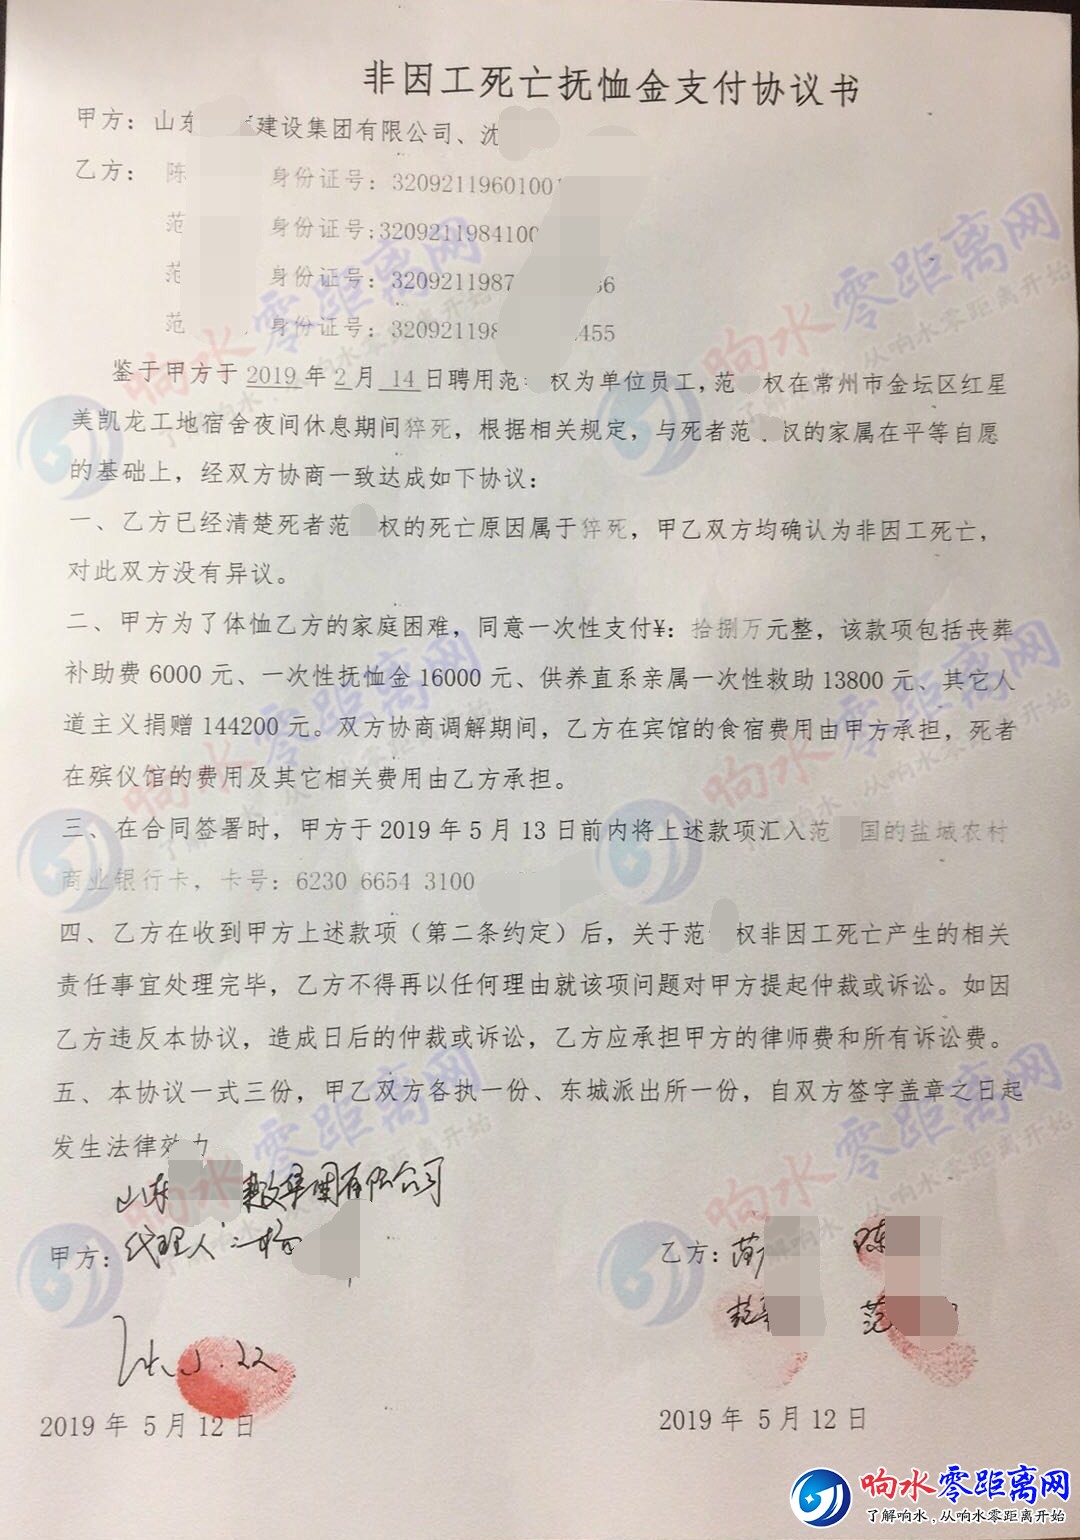 非因工死亡抚恤金支付协议书
甲方：山东 建设集团有限公司、沈
乙方： 陈 身份证号：32092119601001
范 身份证号:3209211984100
范 身份证号：3209211987 66
范 身份证号：320921198 455
鉴于甲方于 2019 年 2 月 14 日聘用范 权为单位员工，范 权在常州市金坛区红星
美凯龙工地宿舍夜间休息期间猝死，根据相关规定，与死者范 权的家属在平等自愿
的基础上，经双方协商一致达成如下协议：
一、乙方已经清楚死者范 权的死亡原因属于猝死，甲乙双方均确认为非因工死亡，
对此双方没有异议。
二、甲方为了体恤乙方的家庭困难，同意一次性支付¥：拾捌万元整，该款项包括丧葬
补助费 6000 元、一次性抚恤金 16000 元、供养直系亲属一次性救助 13800 元、其它人
道主义捐赠 144200 元。双方协商调解期间，乙方在宾馆的食宿费用由甲方承担，死者
在殡仪馆的费用及其它相关费用由乙方承担。
三、在合同签署时，甲方于 2019 年 5 月 13 日前内将上述款项汇入范 国的盐城农村
商业银行卡，卡号：6230 6654 3100
四、乙方在收到甲方上述款项（第二条约定）后，关于范 权非因工死亡产生的相关
责任事宜处理完毕，乙方不得再以任何理由就该项问题对甲方提起仲裁或诉讼。如因
乙方违反本协议，造成日后的仲裁或诉讼，乙方应承担甲方的律师费和所有诉讼费。
五、本协议一式三份，甲乙双方各执一份、东城派出所一份，自双方签字盖章之日起
发生法律效力
山东 集团有限公司
甲方：代理人
乙方：范 陈
范 范
2019 年 5 月 12 日
2019 年 5 月 12 日
响水零距离网
了解响水，从响水零距离开始